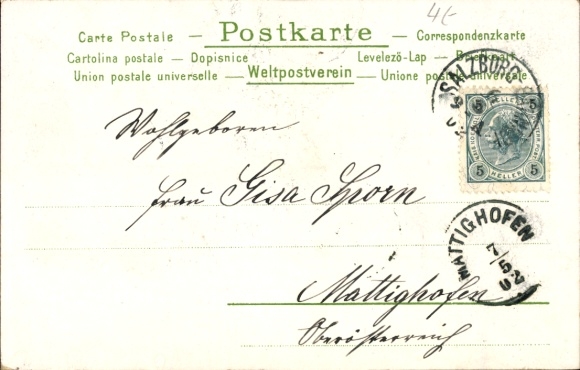 4,-
Carte Postale – Postkarte – Correspondenzkarte
Cartolina postale – Dopisnice Levelező-Lap – Briefkaart
Union postale universelle – Weltpostverein – Unione postale universale
SALZBURG
5 HELLER 5
5 HELLER 5
Wohlgeboren
Frau Gisa Sporn
MATTIGHOFEN
7/5 02
Mattighofen
Oberösterreich